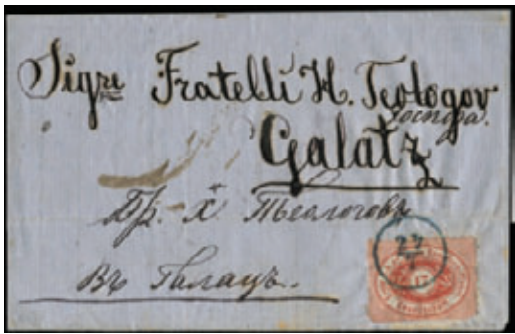 Sigre Fratelli H. Teologov
Господа.
Galatz
Бр. Х Теологовъ
Въ Галацъ.
27
17